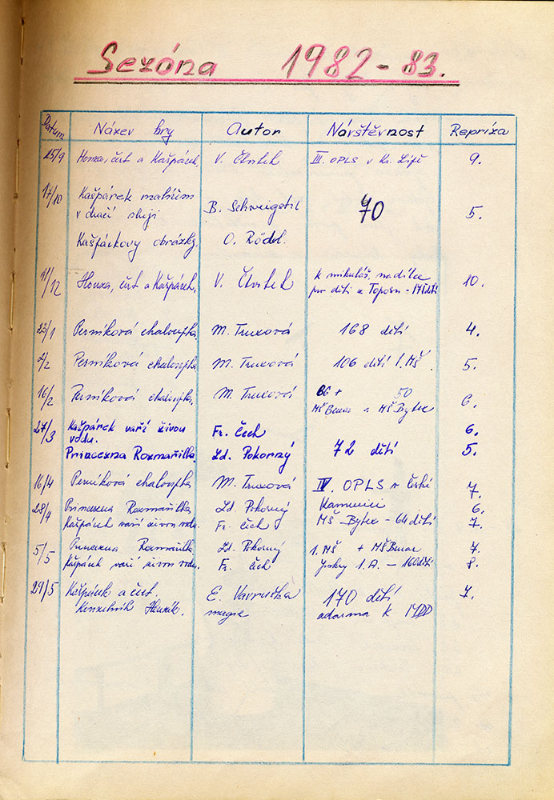 Sezóna 1982-83.
Datum Název hry Autor Návštěvnost Repríza
25/9 Honza, čert a Kašpárek, V. Čtvrtek III. OPLS v 9.
17/10 Kašpárek malířem
v dračí sluji B. Schweigstil 70 5.
Kašpárkovy obrázky. O. Rödl.
11/12 Honza, čert a Kašpárek, V. Čtvrtek k mikuláš. nadílce 10.
pro děti
23/1 Perníková chaloupka M. Truxová 168 dětí 4.
2/2 Perníková chaloupka M. Truxová 106 dětí 1. MŠ 5.
16/2 Perníková chaloupka. M. Truxová 66 + 50 6.
MŠ Benar a MŠ Bytex
27/3 Kašpárek vaří živou Fr. Čech 6.
vodu.
Princezna Rozmařilka. Ld. Pokorný 72 dětí 5.
16/4 Perníková chaloupka M. Truxová IV. OPLS v České 7.
Kamenici
28/4 Princezna Rozmařilka, Ld. Pokorný 6.
Kašpárek vaří živou vodu. Fr. Čech MŠ-Bytex - 64 dětí 7.
5/5 Princezna Rozmařilka Ld. Pokorný 1. MŠ + MŠ Benar 7.
Kašpárek vaří živou vodu. Fr. Čech Jesky 1. A. - 160 dětí 8.
29/5 Kašpárek a čert. E. Vavruška 170 dětí 7.
Kouzelník magie zdarma k MDD